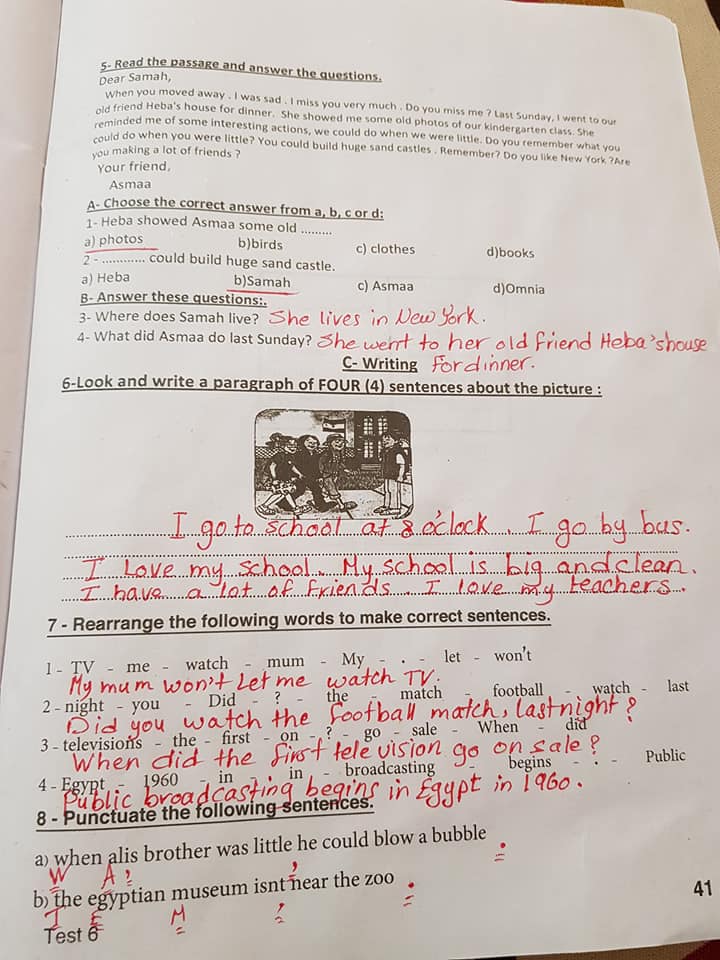 5- Read the passage and answer the questions.
Dear Samah,
When you moved away . I was sad . I miss you very much . Do you miss me ? Last Sunday, I went to our
old friend Heba's house for dinner. She showed me some old photos of our kindergarten class. She
reminded me of some interesting actions, we could do when we were little. Do you remember what you
could do when you were little? You could build huge sand castles . Remember? Do you like New York ?Are
you making a lot of friends ?
Your friend,
Asmaa
A- Choose the correct answer from a, b, c or d:
1- Heba showed Asmaa some old .........
a) photos b)birds c) clothes d)books
2 - ............ could build huge sand castle.
a) Heba b)Samah c) Asmaa d)Omnia
B- Answer these questions:.
3- Where does Samah live? She lives in New York.
4- What did Asmaa do last Sunday? She went to her old friend Heba's house
C- Writing For dinner.
6-Look and write a paragraph of FOUR (4) sentences about the picture :
I go to school at 8 o'clock . I go by bus.
I Love my school. My school is big and clean.
I have a lot of friends . I love my teachers.
7 - Rearrange the following words to make correct sentences.
1 - TV - me - watch - mum - My - . - let - won't
My mum won't Let me watch TV.
2 - night - you - Did - ? - the - match - football - watch - last
Did you watch the football match, last night ?
3 - televisions - the - first - on - ? - go - sale - When - did
When did the first tele vision go on sale ?
4 - Egypt - 1960 - in - in - broadcasting - begins - . - Public
Public broadcasting begins in Egypt in 1960.
8 - Punctuate the following sentences.
a) when alis brother was little he could blow a bubble .
W A ' ,
b) the egyptian museum isnt near the zoo .
T E M '
Test 6
41